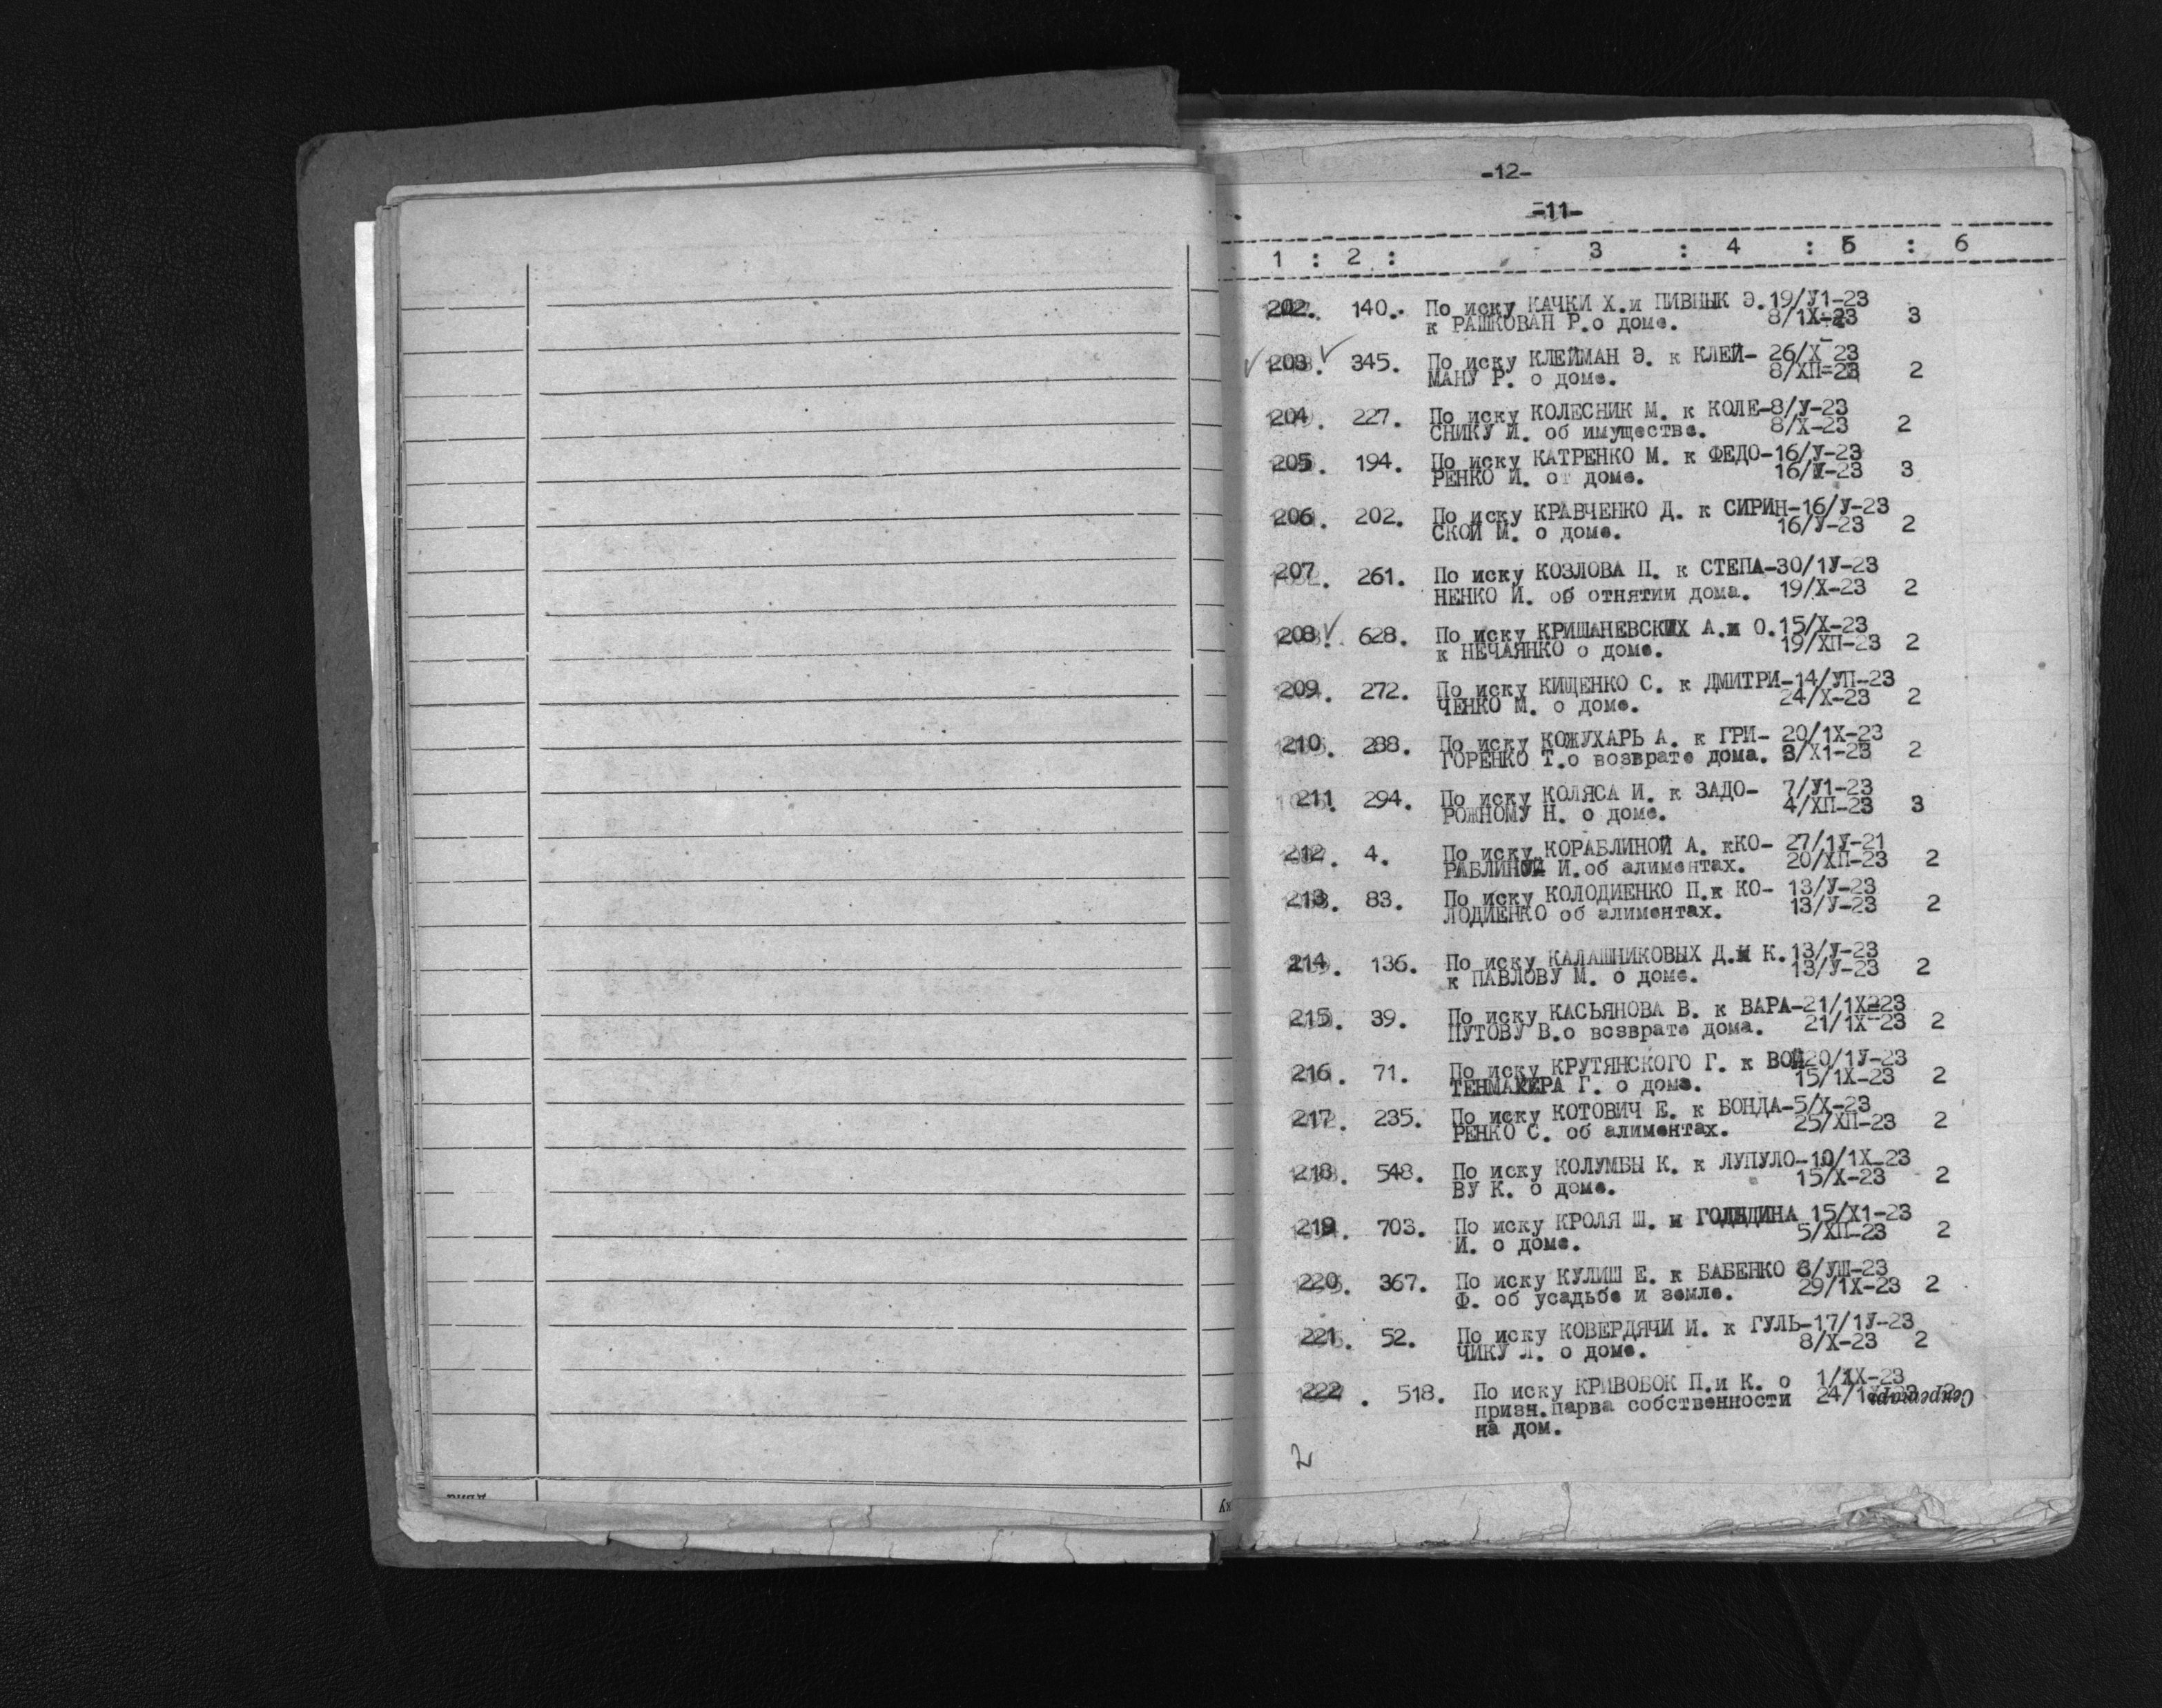 -12-
-11-
1 : 2 : 3 : 4 : 5 : 6
202. 140. По иску КАЧКИ Х.и ПИВНЫК Э. 19/У1-23
к РАШКОВАН Р.о доме. 8/1Х-23 3
203. 345. По иску КЛЕЙМАН Э. к КЛЕЙ- 26/Х-23
МАНУ Р. о доме. 8/ХП-23 2
204. 227. По иску КОЛЕСНИК М. к КОЛЕ-8/У-23
СНИКУ И. об имуществе. 8/Х-23 2
205. 194. По иску КАТРЕНКО М. к ФЕДО-16/У-23
РЕНКО И. от доме. 16/У-23 3
206. 202. По иску КРАВЧЕНКО Д. к СИРИН-16/У-23
СКОЙ М. о доме. 16/У-23 2
207. 261. По иску КОЗЛОВА П. к СТЕПА-30/1У-23
НЕНКО И. об отнятии дома. 19/Х-23 2
208. 628. По иску КРИШАНЕВСКИХ А.и О. 15/Х-23
к НЕЧАЯНКО о доме. 19/ХП-23 2
209. 272. По иску КИЩЕНКО С. к ДМИТРИ-14/УП-23
ЧЕНКО М. о доме. 24/Х-23 2
210. 288. По иску КОЖУХАРЬ А. к ГРИ- 20/1Х-23
ГОРЕНКО Т.о возврате дома. 3/Х1-23 2
211. 294. По иску КОЛЯСА И. к ЗАДО- 7/У1-23
РОЖНОМУ Н. о доме. 4/ХП-23 3
212. 4. По иску КОРАБЛИНОЙ А. кКО- 27/1У-21
РАБЛИНОЙ И.об алиментах. 20/ХП-23 2
213. 83. По иску КОЛОДИЕНКО П.к КО- 13/У-23
ЛОДИЕНКО об алиментах. 13/У-23 2
214. 136. По иску КАЛАШНИКОВЫХ Д.и К. 13/У-23
к ПАВЛОВУ М. о доме. 13/У-23 2
215. 39. По иску КАСЬЯНОВА В. к ВАРА-21/1Х-23
ПУТОВУ В.о возврате дома. 21/1Х-23 2
216. 71. По иску КРУТЯНСКОГО Г. к ВОЙ20/1У-23
ТЕНМАХЕРА Г. о доме. 15/1Х-23 2
217. 235. По иску КОТОВИЧ Е. к БОНДА-5/Х-23
РЕНКО С. об алиментах. 25/ХП-23 2
218. 548. По иску КОЛУМБЫ К. к ЛУПУЛО-10/1Х-23
ВУ К. о доме. 15/Х-23 2
219. 703. По иску КРОЛЯ Ш. и ГОЛЬДИНА 15/Х1-23
И. о доме. 5/ХП-23 2
220. 367. По иску КУЛИШ Е. к БАБЕНКО 8/УШ-23
Ф. об усадьбе и земле. 29/1Х-23 2
221. 52. По иску КОВЕРДЯЧИ И. к ГУЛЬ-17/1У-23
ЧИКУ Л. о доме. 8/Х-23 2
222. 518. По иску КРИВОБОК П.и К. о 1/1Х-23
призн.парва собственности 24/1Х-23 2
на дом.
Секретарь
2